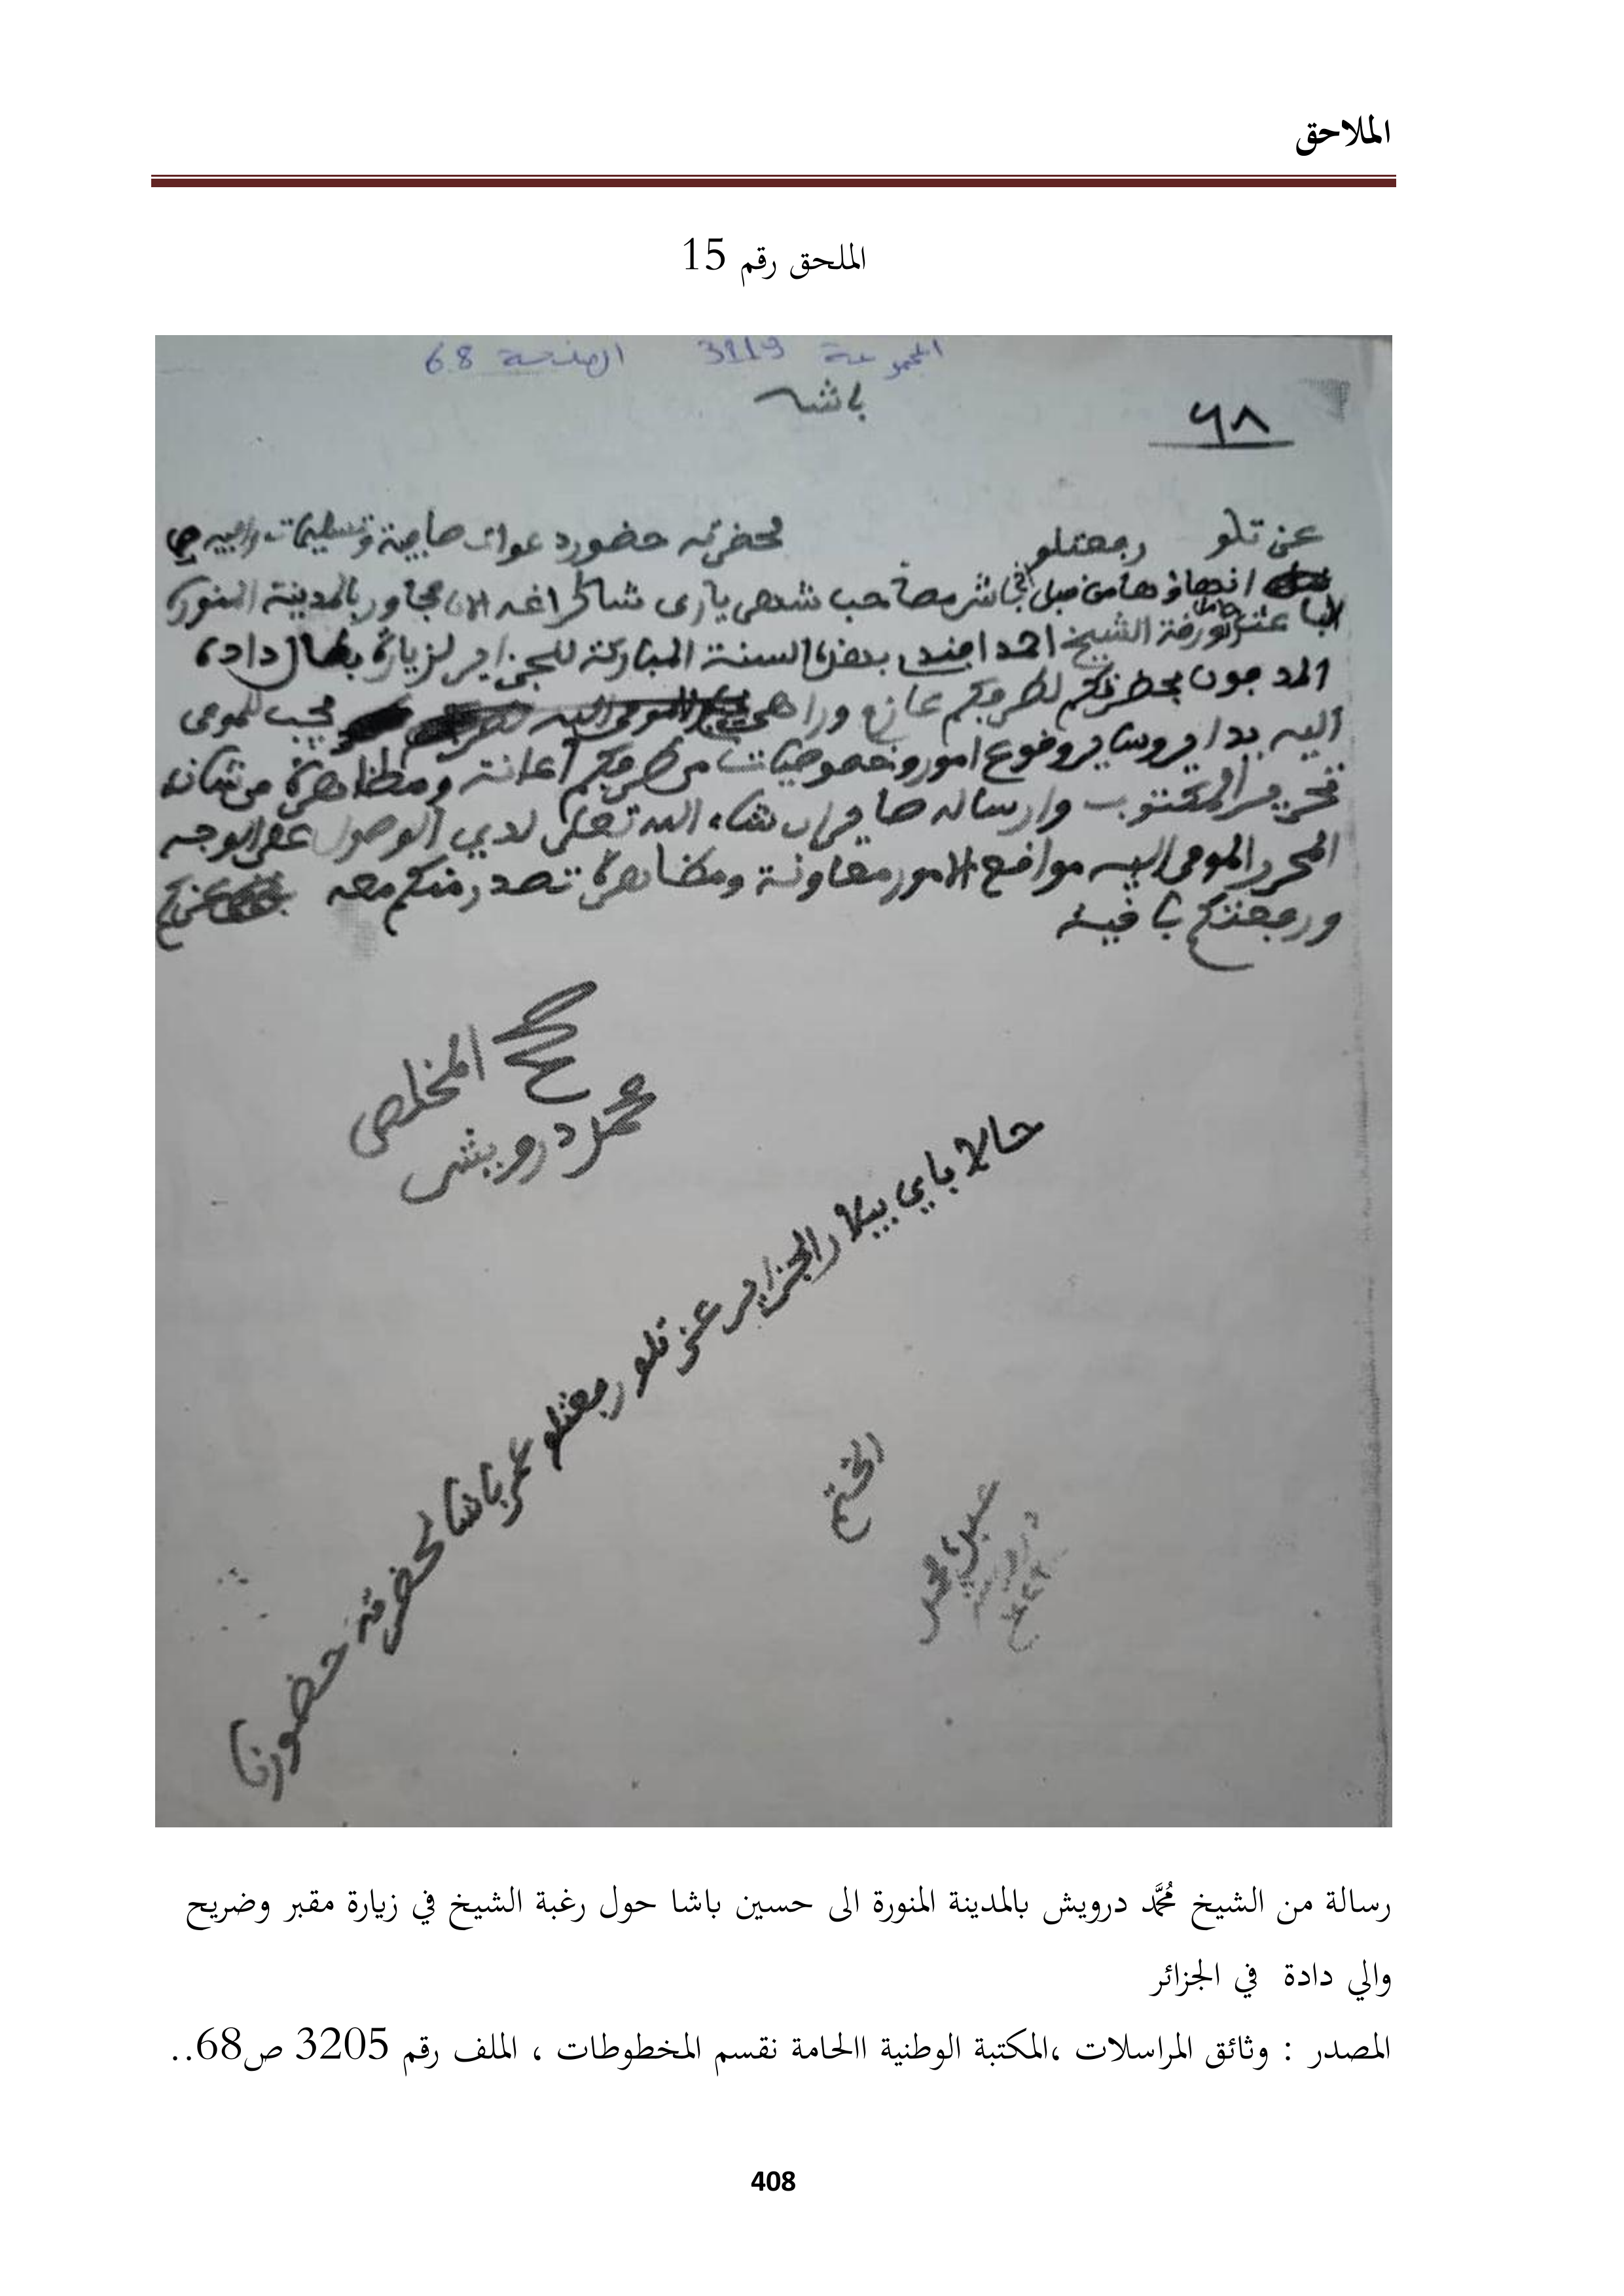 الملاحق
الملحق رقم 15
المجموعة 3119 الصفحة 68
باشه
٦٨
عزتلو رمعتلو لحضرتمه حضورد عواف صافية وتسليمات وافيه
من قبل شر مصاحب شهرياري شاكر اغه الان مجاور بالمدينة المنورة
الشيخ احمد افندي بهذه السنة المباركة للجزاير لزيارة دادة
المدجون بحضرتكم لطرفكم عازم وراهي المومى اليه محب للمومى
اليه بداير وساير وقوع امور وخصوصيات من طرفكم اعانة ومظاهرة من شانه
تحرير المكتوب وارساله صاير ان شاء الله تعلى لدي الوصول على الوجه
المحرر المومى اليه مواقع الامور معاونة ومضاهرة تصدر منكم معه عزتكم
ورمعتكم باقية
المخلص
محمد درويش
حالا باي بيلار الجزاير عزتلو رمعتلو عمر باشا لحضرته حضورنا
الختم
عبده محمد
درويش
رسالة من الشيخ مُحَمَّد درويش بالمدينة المنورة الى حسين باشا حول رغبة الشيخ في زيارة مقبر وضريح
والي دادة في الجزائر
المصدر : وثائق المراسلات ،المكتبة الوطنية االحامة نقسم المخطوطات ، الملف رقم 3205 ص68..
408